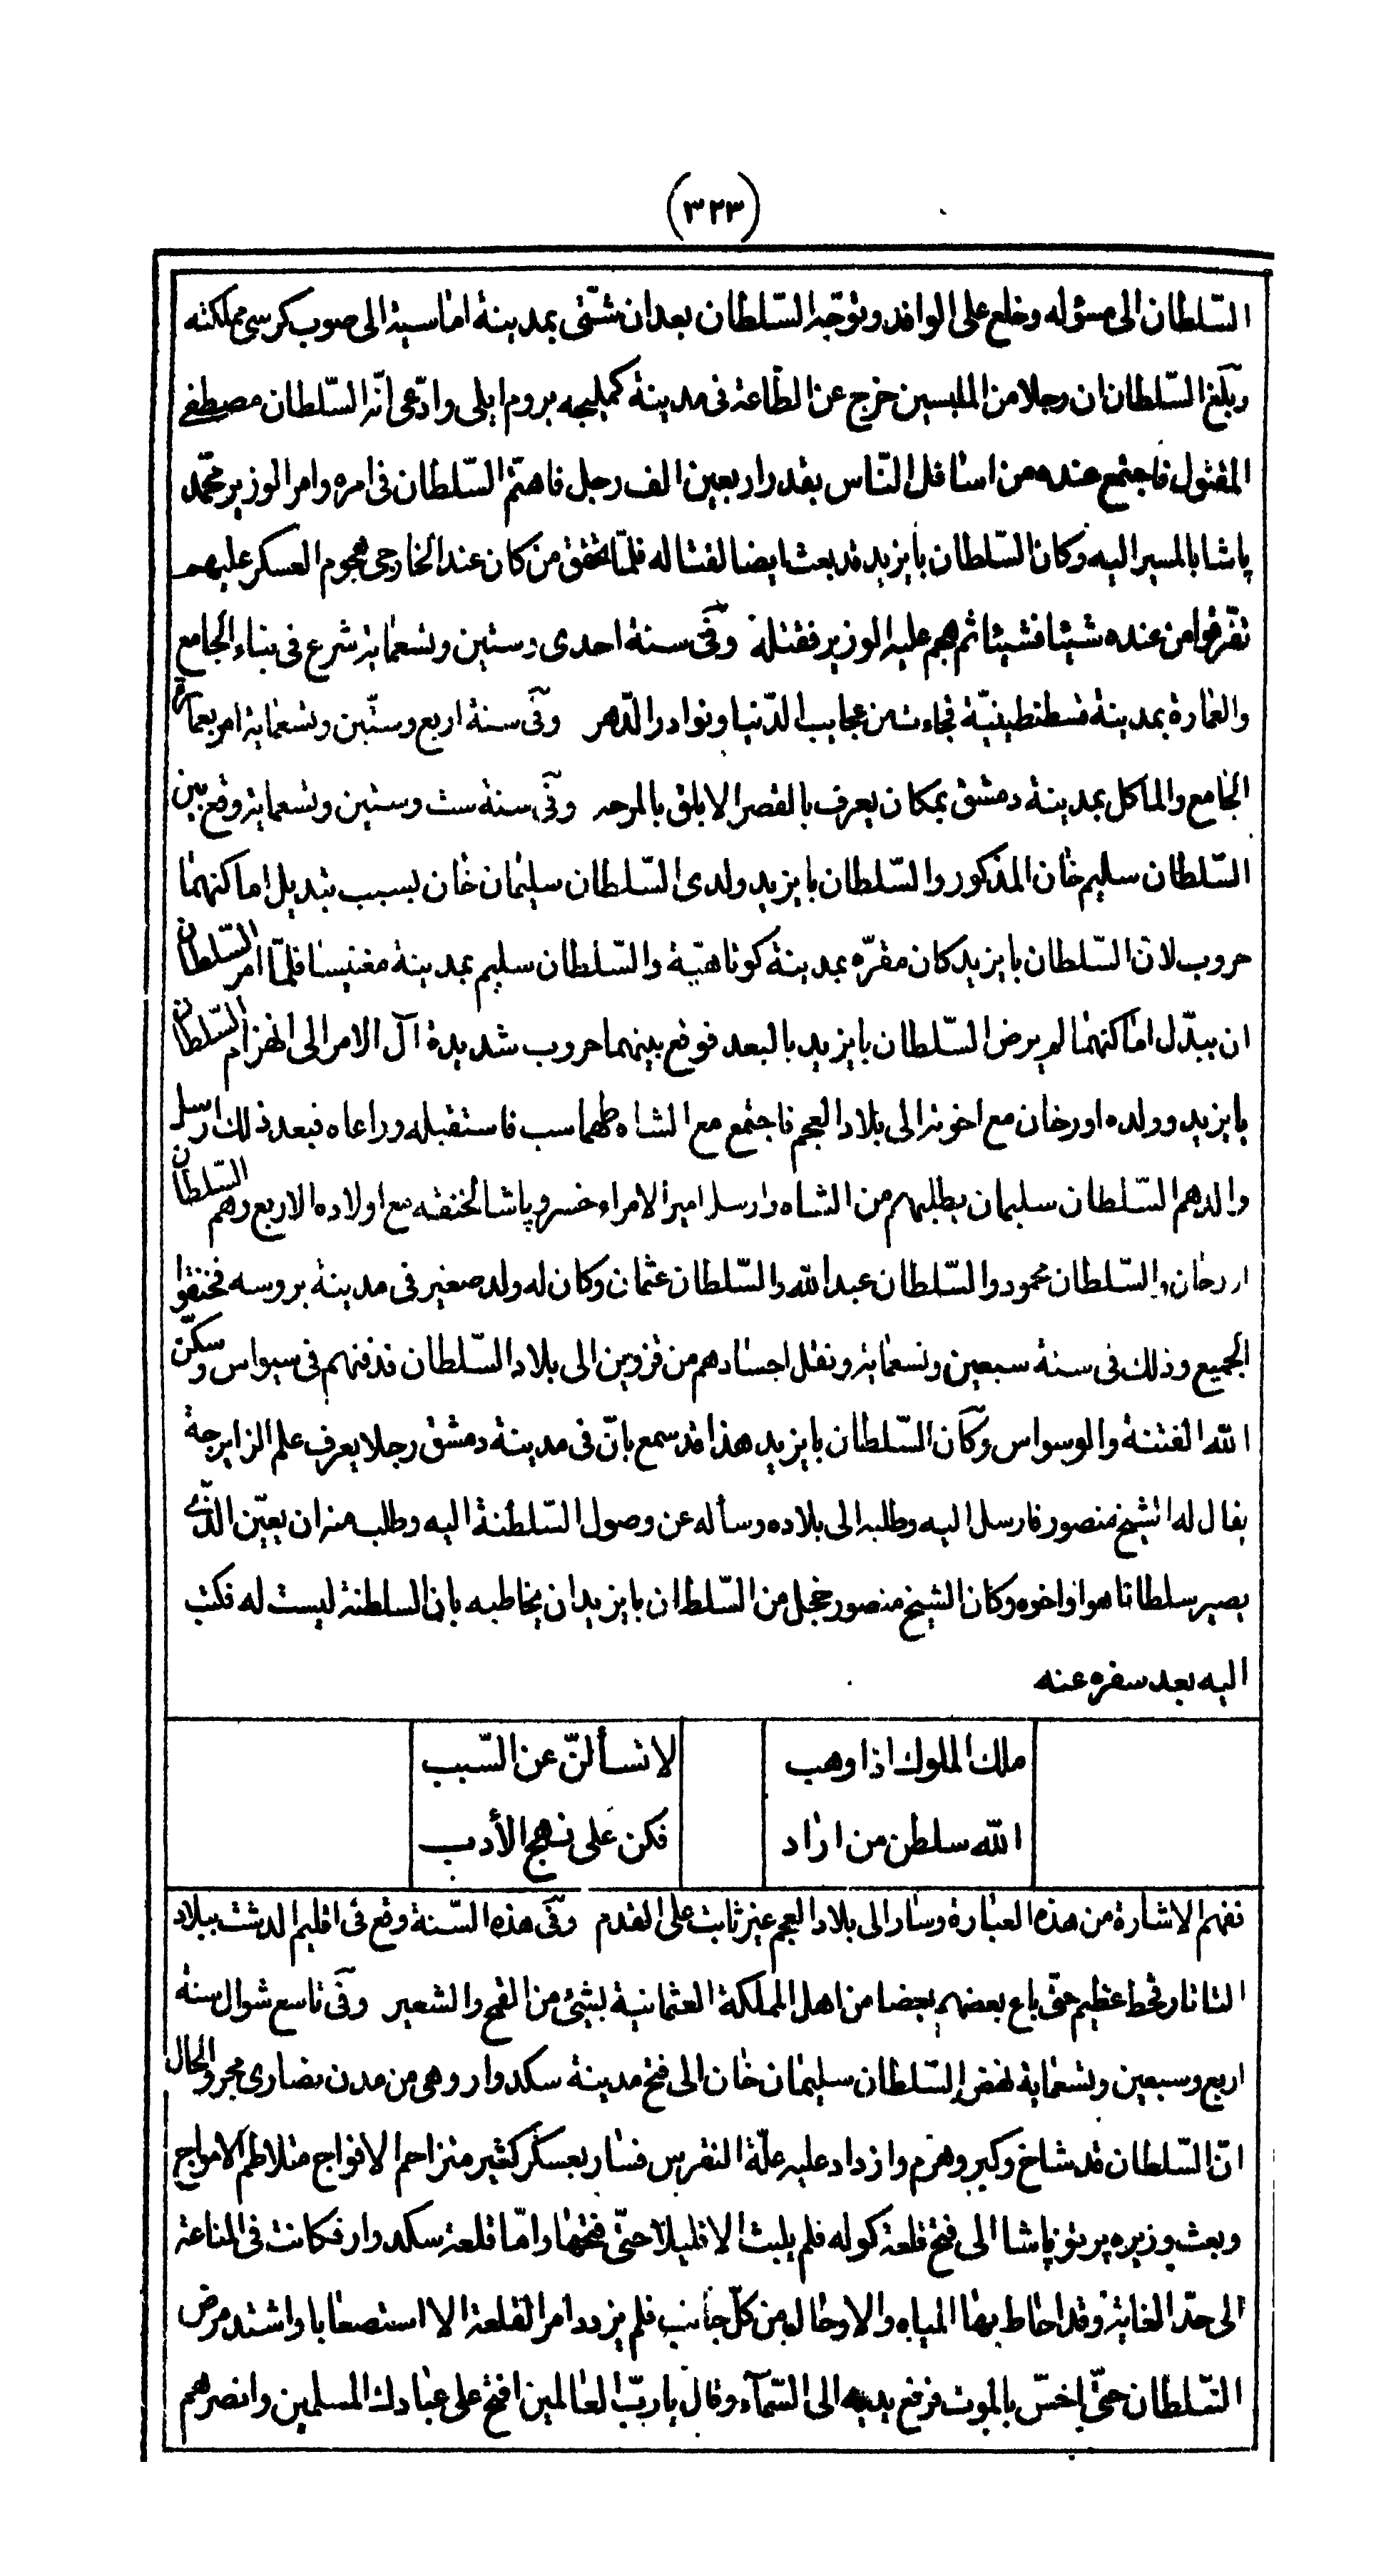 (٣٢٣)
السّلطان الى مسؤله وخلع على الوافد وتوجّه السّلطان بعد ان شتّى بمدينة اماسية الى صوب كرسى مملكته
وبلغ السّلطان ان رجلا من الملبسين خرج عن الطّاعة فى مدينة كميليجه بروم ايلى وادّعى انّه السّلطان مصطفى
المقتول فاجتمع عنده من اسافل النّاس بقدر اربعين الف رجل فاهتمّ السّلطان فى امره وامر الوزير محمّد
پاشا بالمسير اليه وكان السّلطان بايزيد قد بعث ايضا لقتاله فلمّا تحقق من كان عند الخارجى هجوم العسكر عليهم
تفرّقوا من عنده شيئا فشيئا ثم هجم عليه الوزير فقتله وفى سنة احدى وستين وتسعمائة شرع فى بناء الجامع
والعمارة بمدينة قسطنطينيّة فجاءت من عجايب الدّنيا ونوادر الدّهر وفى سنة اربع وستّين وتسعمائة امر بعمارة
الجامع والماكل بمدينة دمشق بمكان يعرف بالقصر الابلق بالمرجه وفى سنة ست وستين وتسعمائة وقع بين
السّلطان سليم خان المذكور والسّلطان بايزيد ولدى السّلطان سليمان خان بسبب تبديل اماكنهما
حروب لانّ السّلطان بايزيد كان مقرّه بمدينة كوتاهيّة والسّلطان سليم بمدينة مغنيسا فلمّا امر السّلطان
ان يبدّل اماكنهما لم يرض السّلطان بايزيد بالبعد فوقع بينهما حروب شديدة آل الامر الى انهزام السّلطان
بايزيد وولده اورخان مع اخوته الى بلاد العجم فاجتمع مع الشاه طهماسب فاستقبله وراعاه فبعد ذلك ارسل
والدهم السّلطان سليمان يطلبهم من الشاه وارسل امير الامراء خسرو پاشا لخنقه مع اولاده الاربع وهم السّلطان
اورخان والسّلطان محمود والسّلطان عبدالله والسّلطان عثمان وكان له ولد صغير فى مدينة بروسه فخنقوا
الجميع وذلك فى سنة سبعين وتسعمائة ونقل اجسادهم من قزوين الى بلاد السّلطان فدفنهم فى سيواس وسكّن
الله الفتنة والوسواس وكان السّلطان بايزيد هذا قد سمع بانّ فى مدينة دمشق رجلا يعرف علم الزايرجة
يقال له الشيخ منصور فارسل اليه وطلبه الى بلاده وسأله عن وصول السّلطنة اليه وطلب منه ان يعيّن الذّى
يصير سلطانا هو او اخوه وكان الشيخ منصور خجل من السّلطان بايزيد ان يخاطبه بان السلطنة ليست له فكتب
اليه بعد سفره عنه
ملك الملوك اذا وهب لا تسألنّ عن السّبب
الله سلطن من اراد فكن على نهج الأدب
ففهم الاشارة من هذه العبارة وسار الى بلاد العجم غير ثابت على القدم وفى هذه السّنة وقع فى اقليم الدشت ببلاد
التاتار قحط عظيم حتّى باع بعضهم بعضا من اهل المملكة العثمانية بشئ من القمح والشعير وفى تاسع شوال سنة
اربع وسبعين وتسعماية نهض السّلطان سليمان خان الى فتح مدينة سكدوار وهى من مدن نصارى مجر والحال
انّ السّلطان قد شاخ وكبر وهرم وازداد عليه علّة النقرس فسار بعسكر كثير متزاحم الافواج متلاطم الامواج
وبعث وزيره پرتو پاشا الى فتح قلعة كوله فلم يلبث الا قليلا حتّى فتحها وامّا قلعة سكدوار فكانت فى المناعة
الى حدّ الغاية وقد احاط بها المياه والاوحال من كلّ جانب فلم يزدد امر القلعة الا استصعابا واشتد مرض
السّلطان حتّى احسّ بالموت فرفع يديه الى السّمآء وقال يا ربّ العالمين افتح على عبادك المسلمين وانصرهم